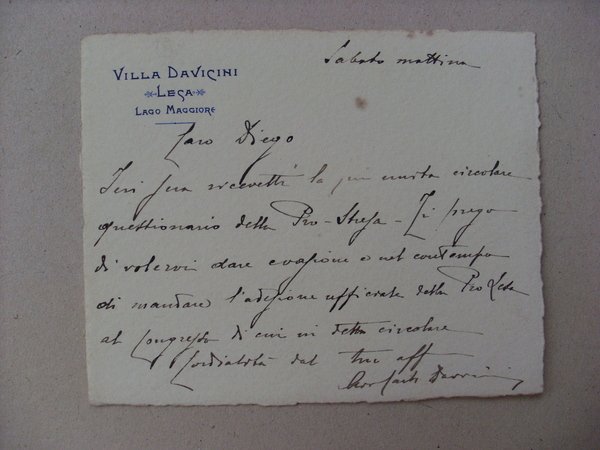 Sabato mattina
VILLA DAVICINI
LESA
LAGO MAGGIORE
Caro Diego
Ieri sera ricevetti la qui unita circolare
questionario della Pro-Stresa - Ti prego
di volervi dare evasione e nel contempo
di mandare l'adesione ufficiale della Pro Lesa
al Congresso di cui in detta circolare
Cordialità dal tuo aff
Davicini